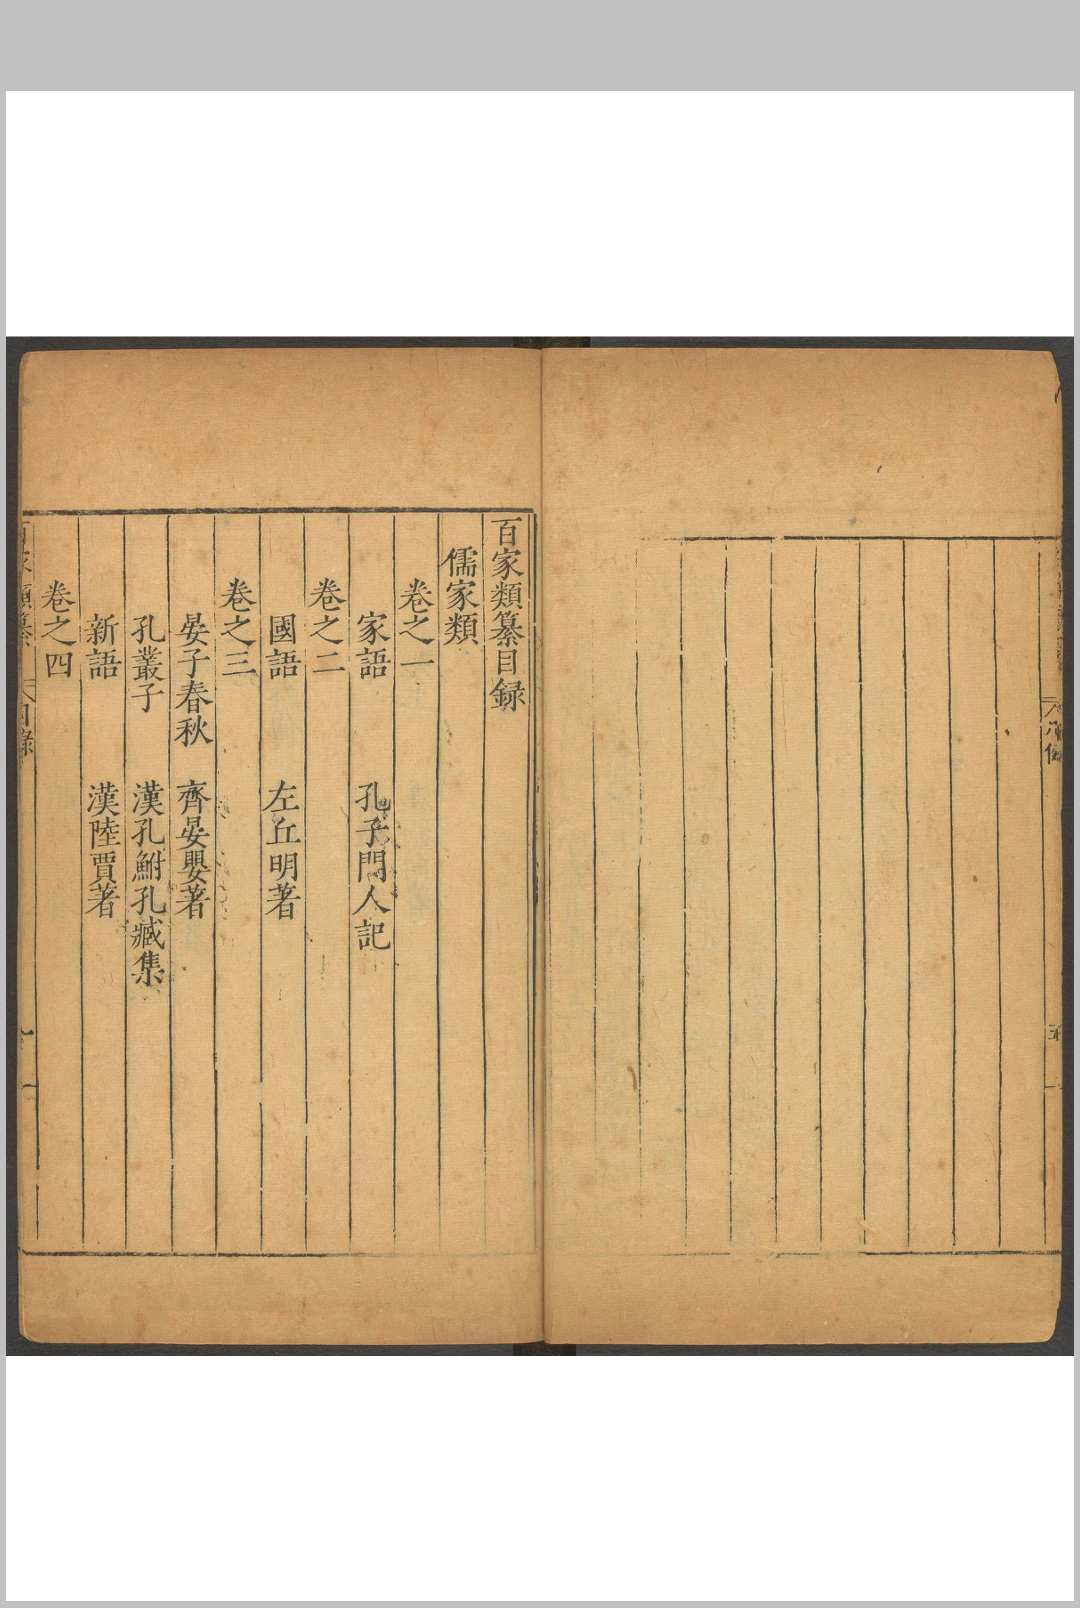 百家類纂目録
儒家類
卷之一
家語 孔子門人記
卷之二
國語 左丘明著
卷之三
晏子春秋 齊晏嬰著
孔叢子 漢孔鮒孔臧集
新語 漢陸賈著
卷之四